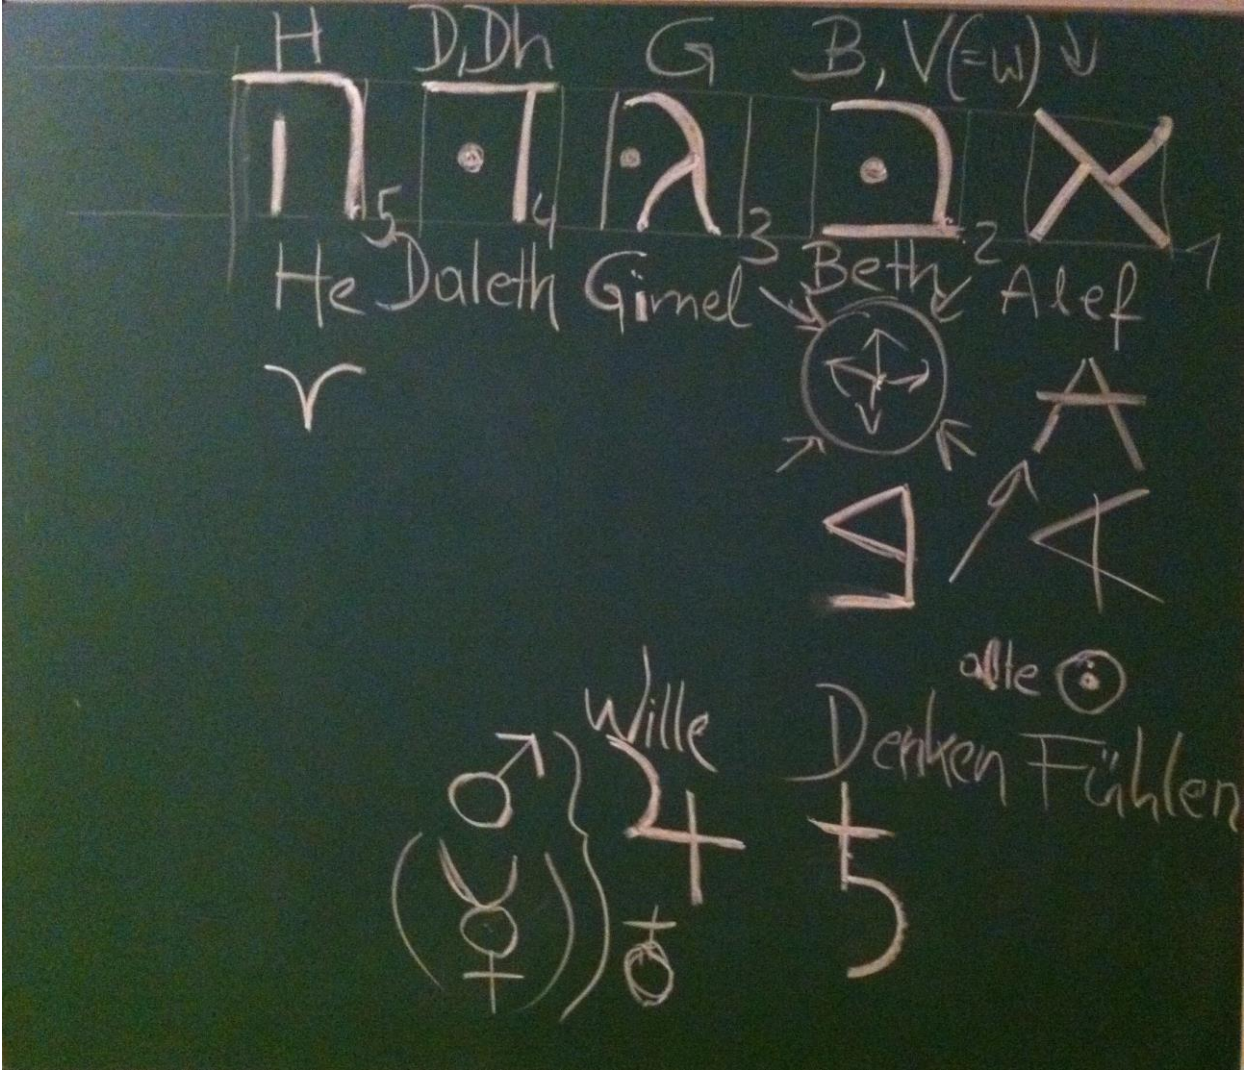 H D,Dh G B, V(=w) ↓
ה דּ גּ בּ א
5 4 3 2 1
He Daleth Gimel Beth Alef
♈ A
alte
Wille Denken Fühlen
♂ ♃ ♄
☿ ♁